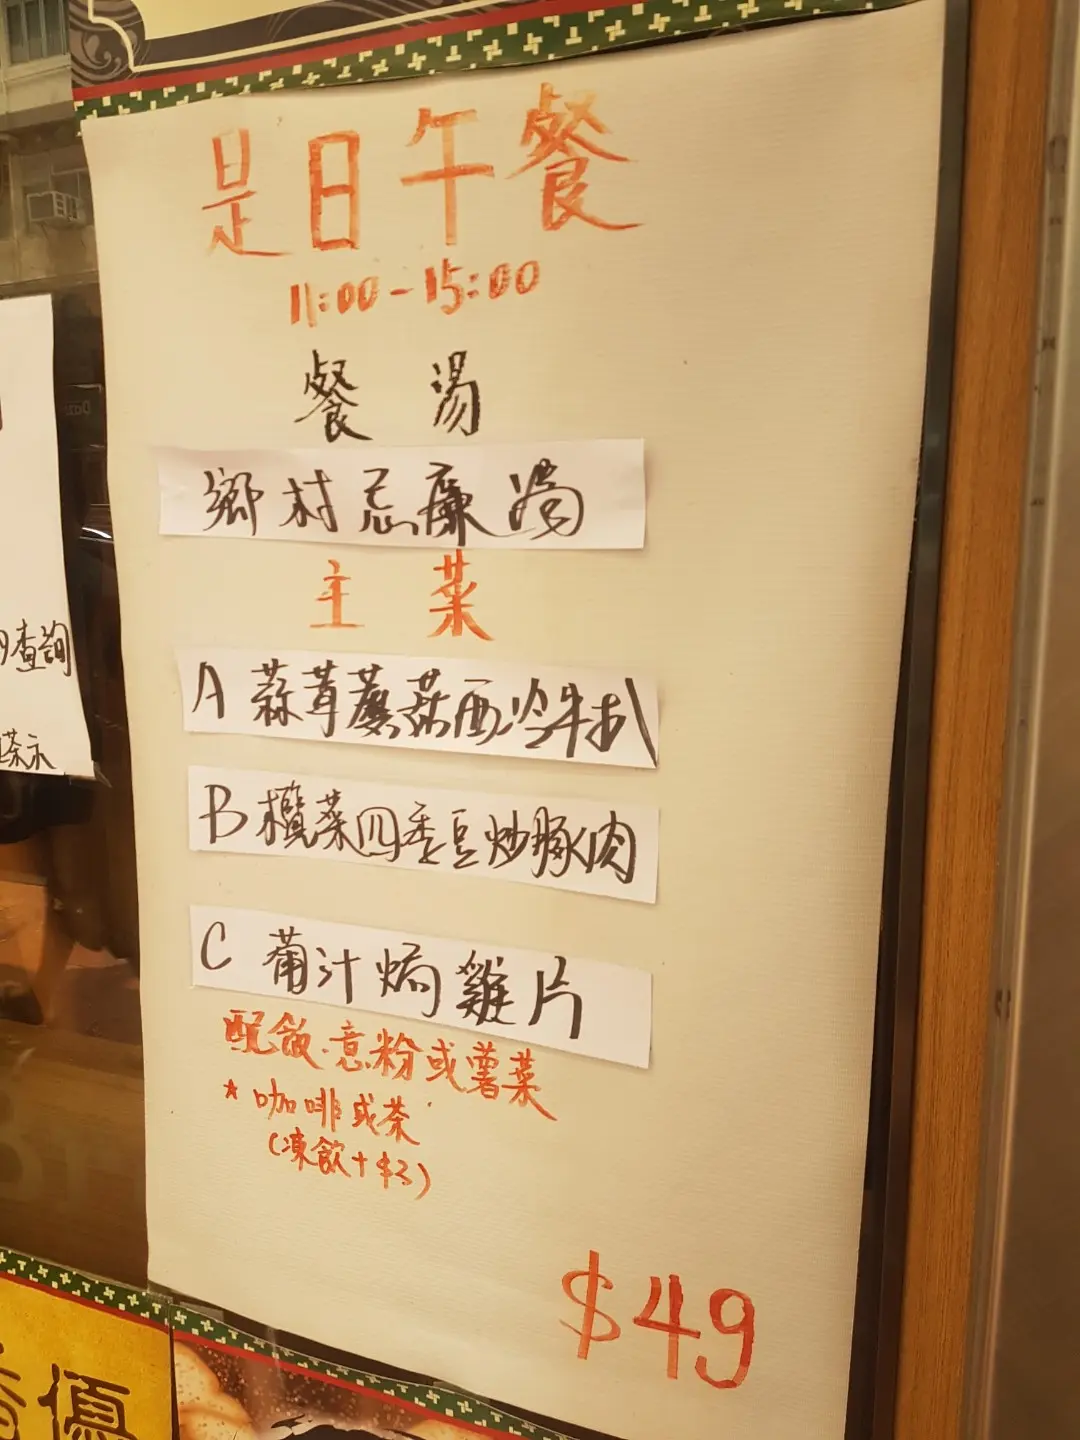 是日午餐
11:00-15:00
餐湯
鄉村忌廉湯
主菜
A 蒜茸蘑菇西冷牛扒
B 欖菜四季豆炒豚肉
C 葡汁焗雞片
配飯.意粉或薯菜
* 咖啡或茶
(凍飲+$3)
$49
查詢
優